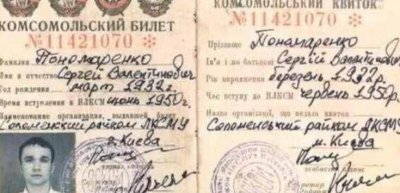 КОМСОМОЛЬСКИЙ БИЛЕТ
№ 11421070
Фамилия Пономаренко
Имя и отчество Сергей Валентинович
Год рождения март 1932 г.
Время вступления в ВЛКСМ июнь 1950 г.
Наименование организации, выдавшей билет
Соломенский райком ЛКСМУ
г. Киева
КОМСОМОЛЬСЬКИЙ КВИТОК
№ 11421070
Прізвище Пономаренко
Ім'я і по батькові Сергій Валентинович
Рік народження березень, 1932 г.
Час вступу до ВЛКСМ Червень 1950 р.
Назва організації, що видала квиток
Солом'янський райком ЛКСМУ
м. Києва